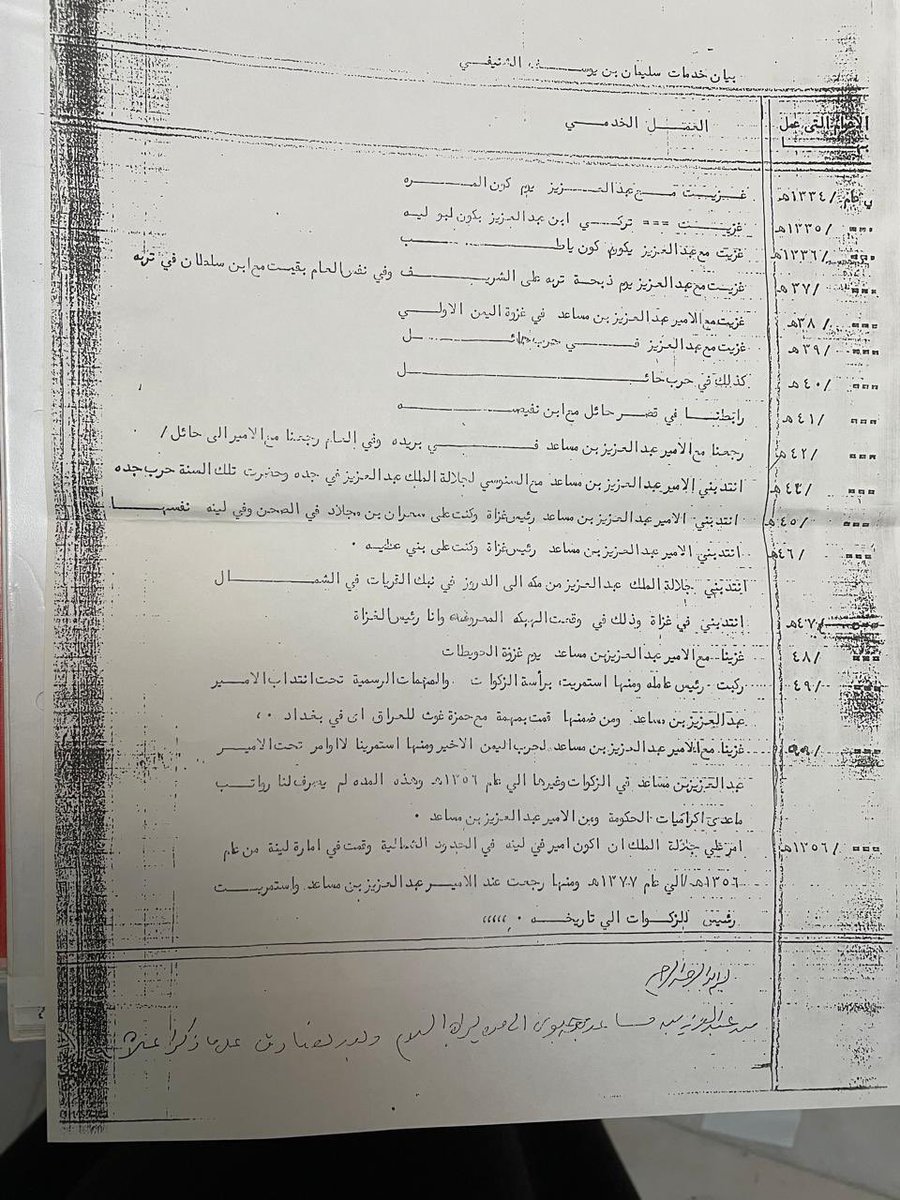 بيان خدمات سليمان بن يوسف الشنيفي
العمل الخدمي
التي عمل
غزيت مع عبدالعزيز يوم كون المره
في عام /١٣٣٤هـ
غزيت === تركي ابن عبدالعزيز بكون ابو ليه
=== /١٣٣٥هـ
غزيت مع عبدالعزيز بكون كون ياطب
=== /١٣٣٦هـ
غزيت مع عبدالعزيز يوم ذبحة تربه على الشريف وفي نفس العام بقيت مع ابن سلطان في تربه
=== /٣٧هـ
غزيت مع الامير عبدالعزيز بن مساعد في غزوة اليمن الاولي
=== /٣٨هـ
غزيت مع عبدالعزيز في حرب حائل
=== /٣٩هـ
كذلك في حرب حائل
=== /٤٠هـ
رابطنا في قصر حائل مع ابن
=== /٤١هـ
رجعنا مع الامير عبدالعزيز بن مساعد في بريده وفي العام رجعنا مع الامير الى حائل/
=== /٤٢هـ
انتدبني الامير عبدالعزيز بن مساعد مع السنوسي لجلالة الملك عبدالعزيز في جده وحضرت تلك السنة حرب جده
=== /٤٣هـ
انتدبني الامير عبدالعزيز بن مساعد رئيس غزاة وكنت على بن مجلاد في الصحن وفي لينه نفسها
=== /٤٥هـ
انتدبني الامير عبدالعزيز بن مساعد رئيس غزاة وكنت على بني عطيه .
=== /٤٦هـ
انتدبني جلالة الملك عبدالعزيز من مكه الى الدروز في نبك القريات في الشمال
انتدبني في غزاة وذلك في وقعت الهبكه المعروفه وانا رئيس الغزاة
=== /٤٧هـ
غزينا مع الامير عبدالعزيز بن مساعد يوم غزوة الحويطات
=== /٤٨
ركبت رئيس عامله ومنها استمريت برأسة الزكوات والمهمات الرسمية تحت انتداب الامير
=== /٤٩
عبدالعزيز بن مساعد ومن ضمنها قمت بمهمة مع حمزة غوث للعراق اي في بغداد ،،
غزينا مع الامير عبدالعزيز بن مساعد لحرب اليمن الاخير ومنها استمرينا لاوامر تحت الامير
=== هـ
عبدالعزيز بن مساعد في الزكوات وغيرها الى عام ١٣٥٦هـ وهذه المده لم يصرف لنا رواتب
ماعدى اكراميات الحكومة ومن الامير عبدالعزيز بن مساعد .
امر جلالة الملك ان اكون امير في لينه في الحدود الشمالية وقمت في امارة لينة من عام
=== /١٣٥٦هـ
١٣٥٦هـ/الي عام ١٣٧٧هـ ومنها رجعت عند الامير عبدالعزيز بن مساعد واستمريت
رئيس للزكوات الي تاريخه . ،،،،،
بسم الله الرحمن الرحيم
من عبدالعزيز بن مساعد الى من يراه السلام على ما ذكر اعلاه